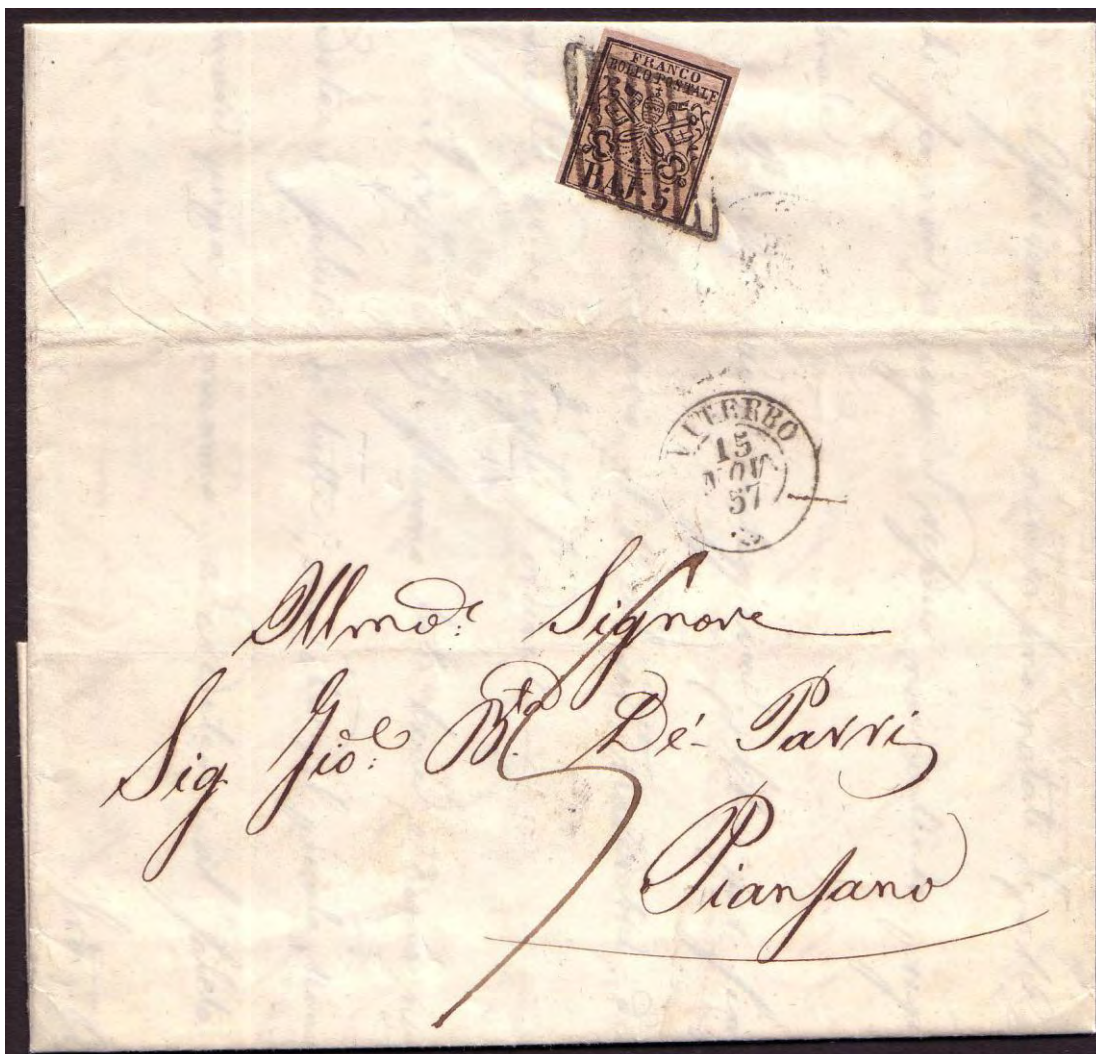 FRANCO
BOLLO POSTALE
BAJ. 5
VITERBO
15
NOV
57
Illmo: Signore
Sig Gio: Bta Dé Parri
Pianſano